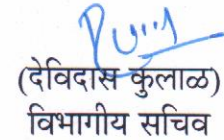 (देविदास कुलाळ)
विभागीय सचिव